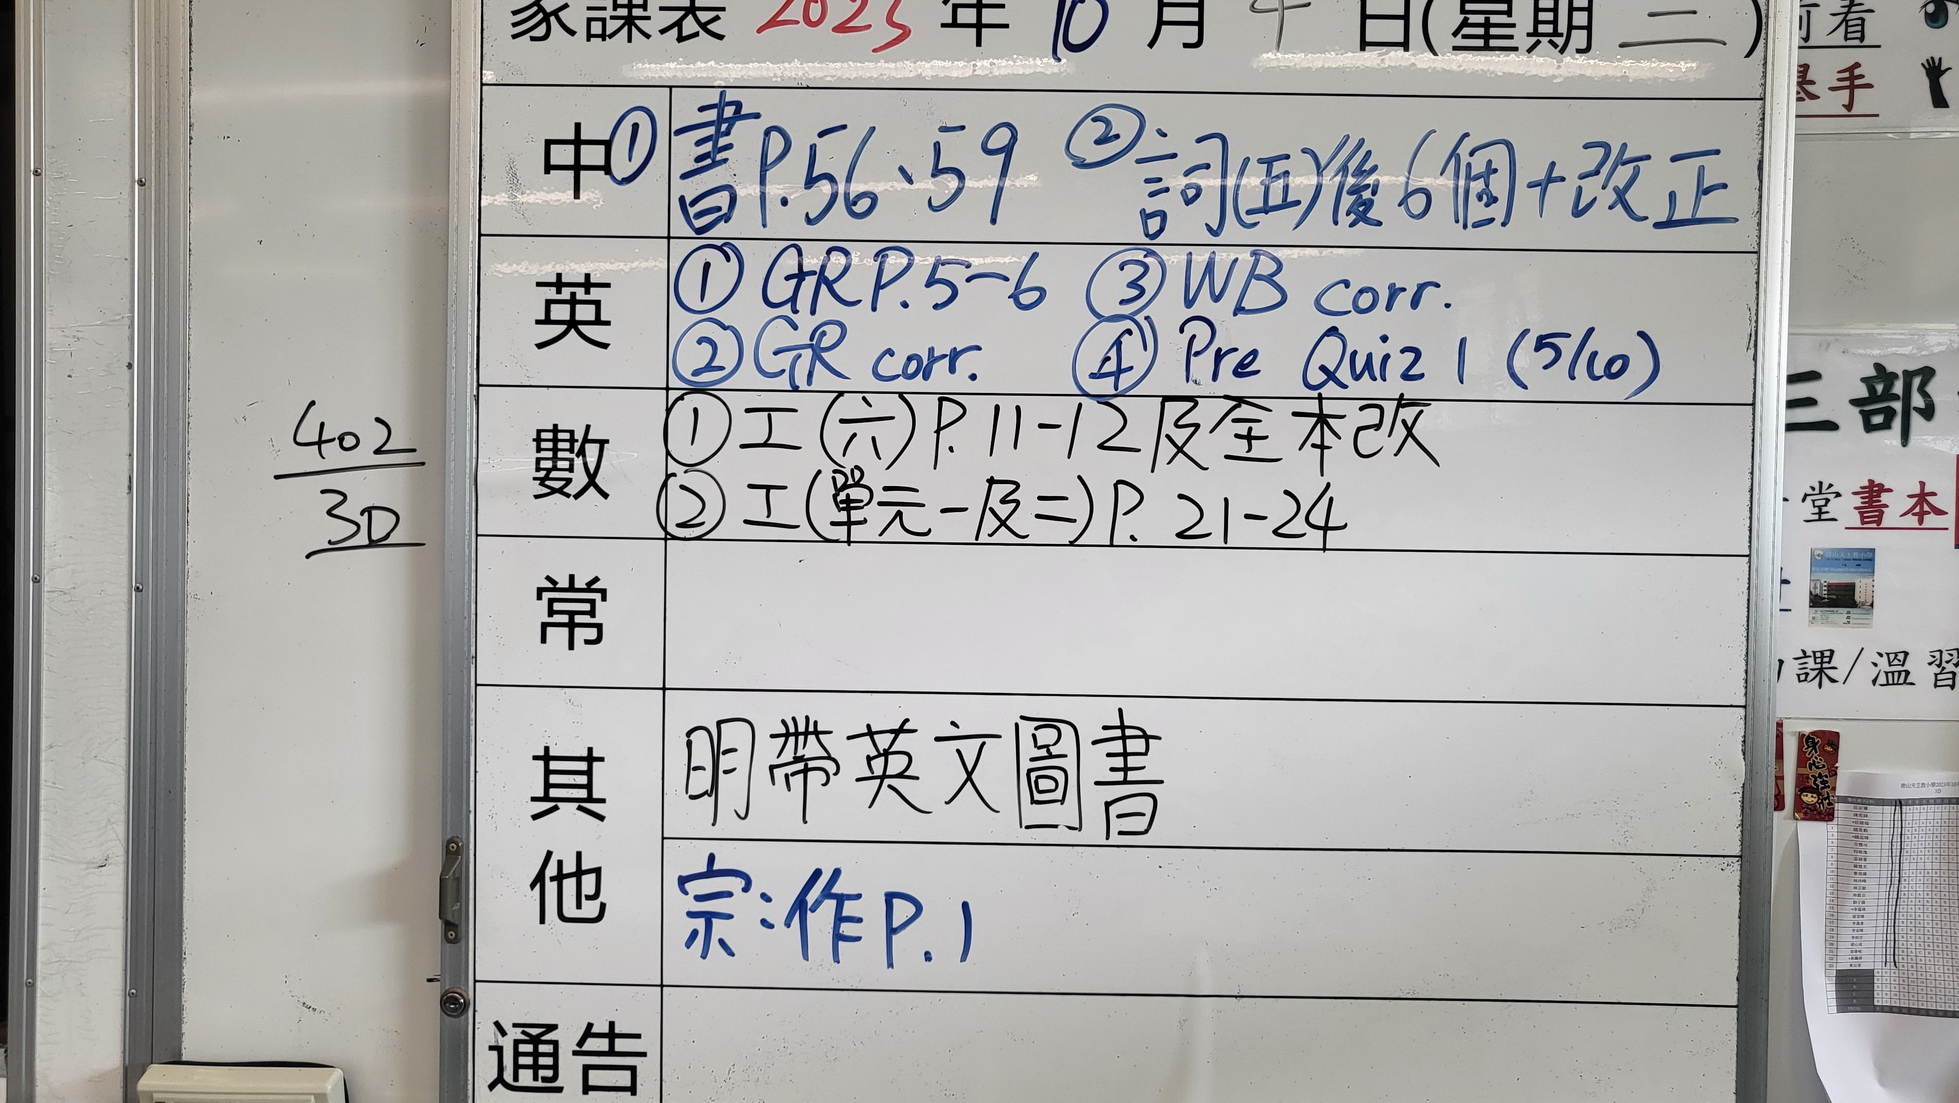 家課表 2023 年 10 月 4 日(星期 三)
中 ① 書P.56、59 ② 詞(五)後6個+改正
英 ① GR P.5-6 ③ WB corr.
② GR corr. ④ Pre Quiz 1 (5/10)
數 ① 工(六)P.11-12及全本改
② 工(單元一及二)P. 21-24
常
其他 明帶英文圖書
宗:作P.1
通告
402
3D
前看
手
三部
堂書本
課/溫習